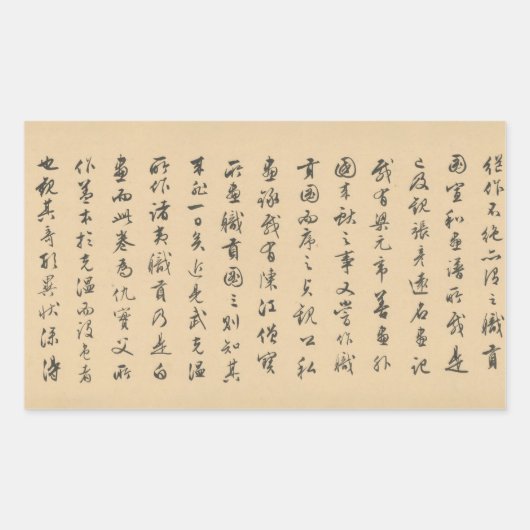 继作不絕亦謂之職貢
圖宣和畫譜所載是
已及觀張彥遠名畫記
載有梁元帝善畫外
國來獻之事又嘗作職
貢圖而序之貞觀公私
畫錄載有陳江僧寶
所畫職貢圖三則知其
来非一日矣近見武克溫
所作諸夷職貢乃是白
畫而此卷為仇實父所
作蓋本於克溫而設色者
也觀其奇形異狀深得